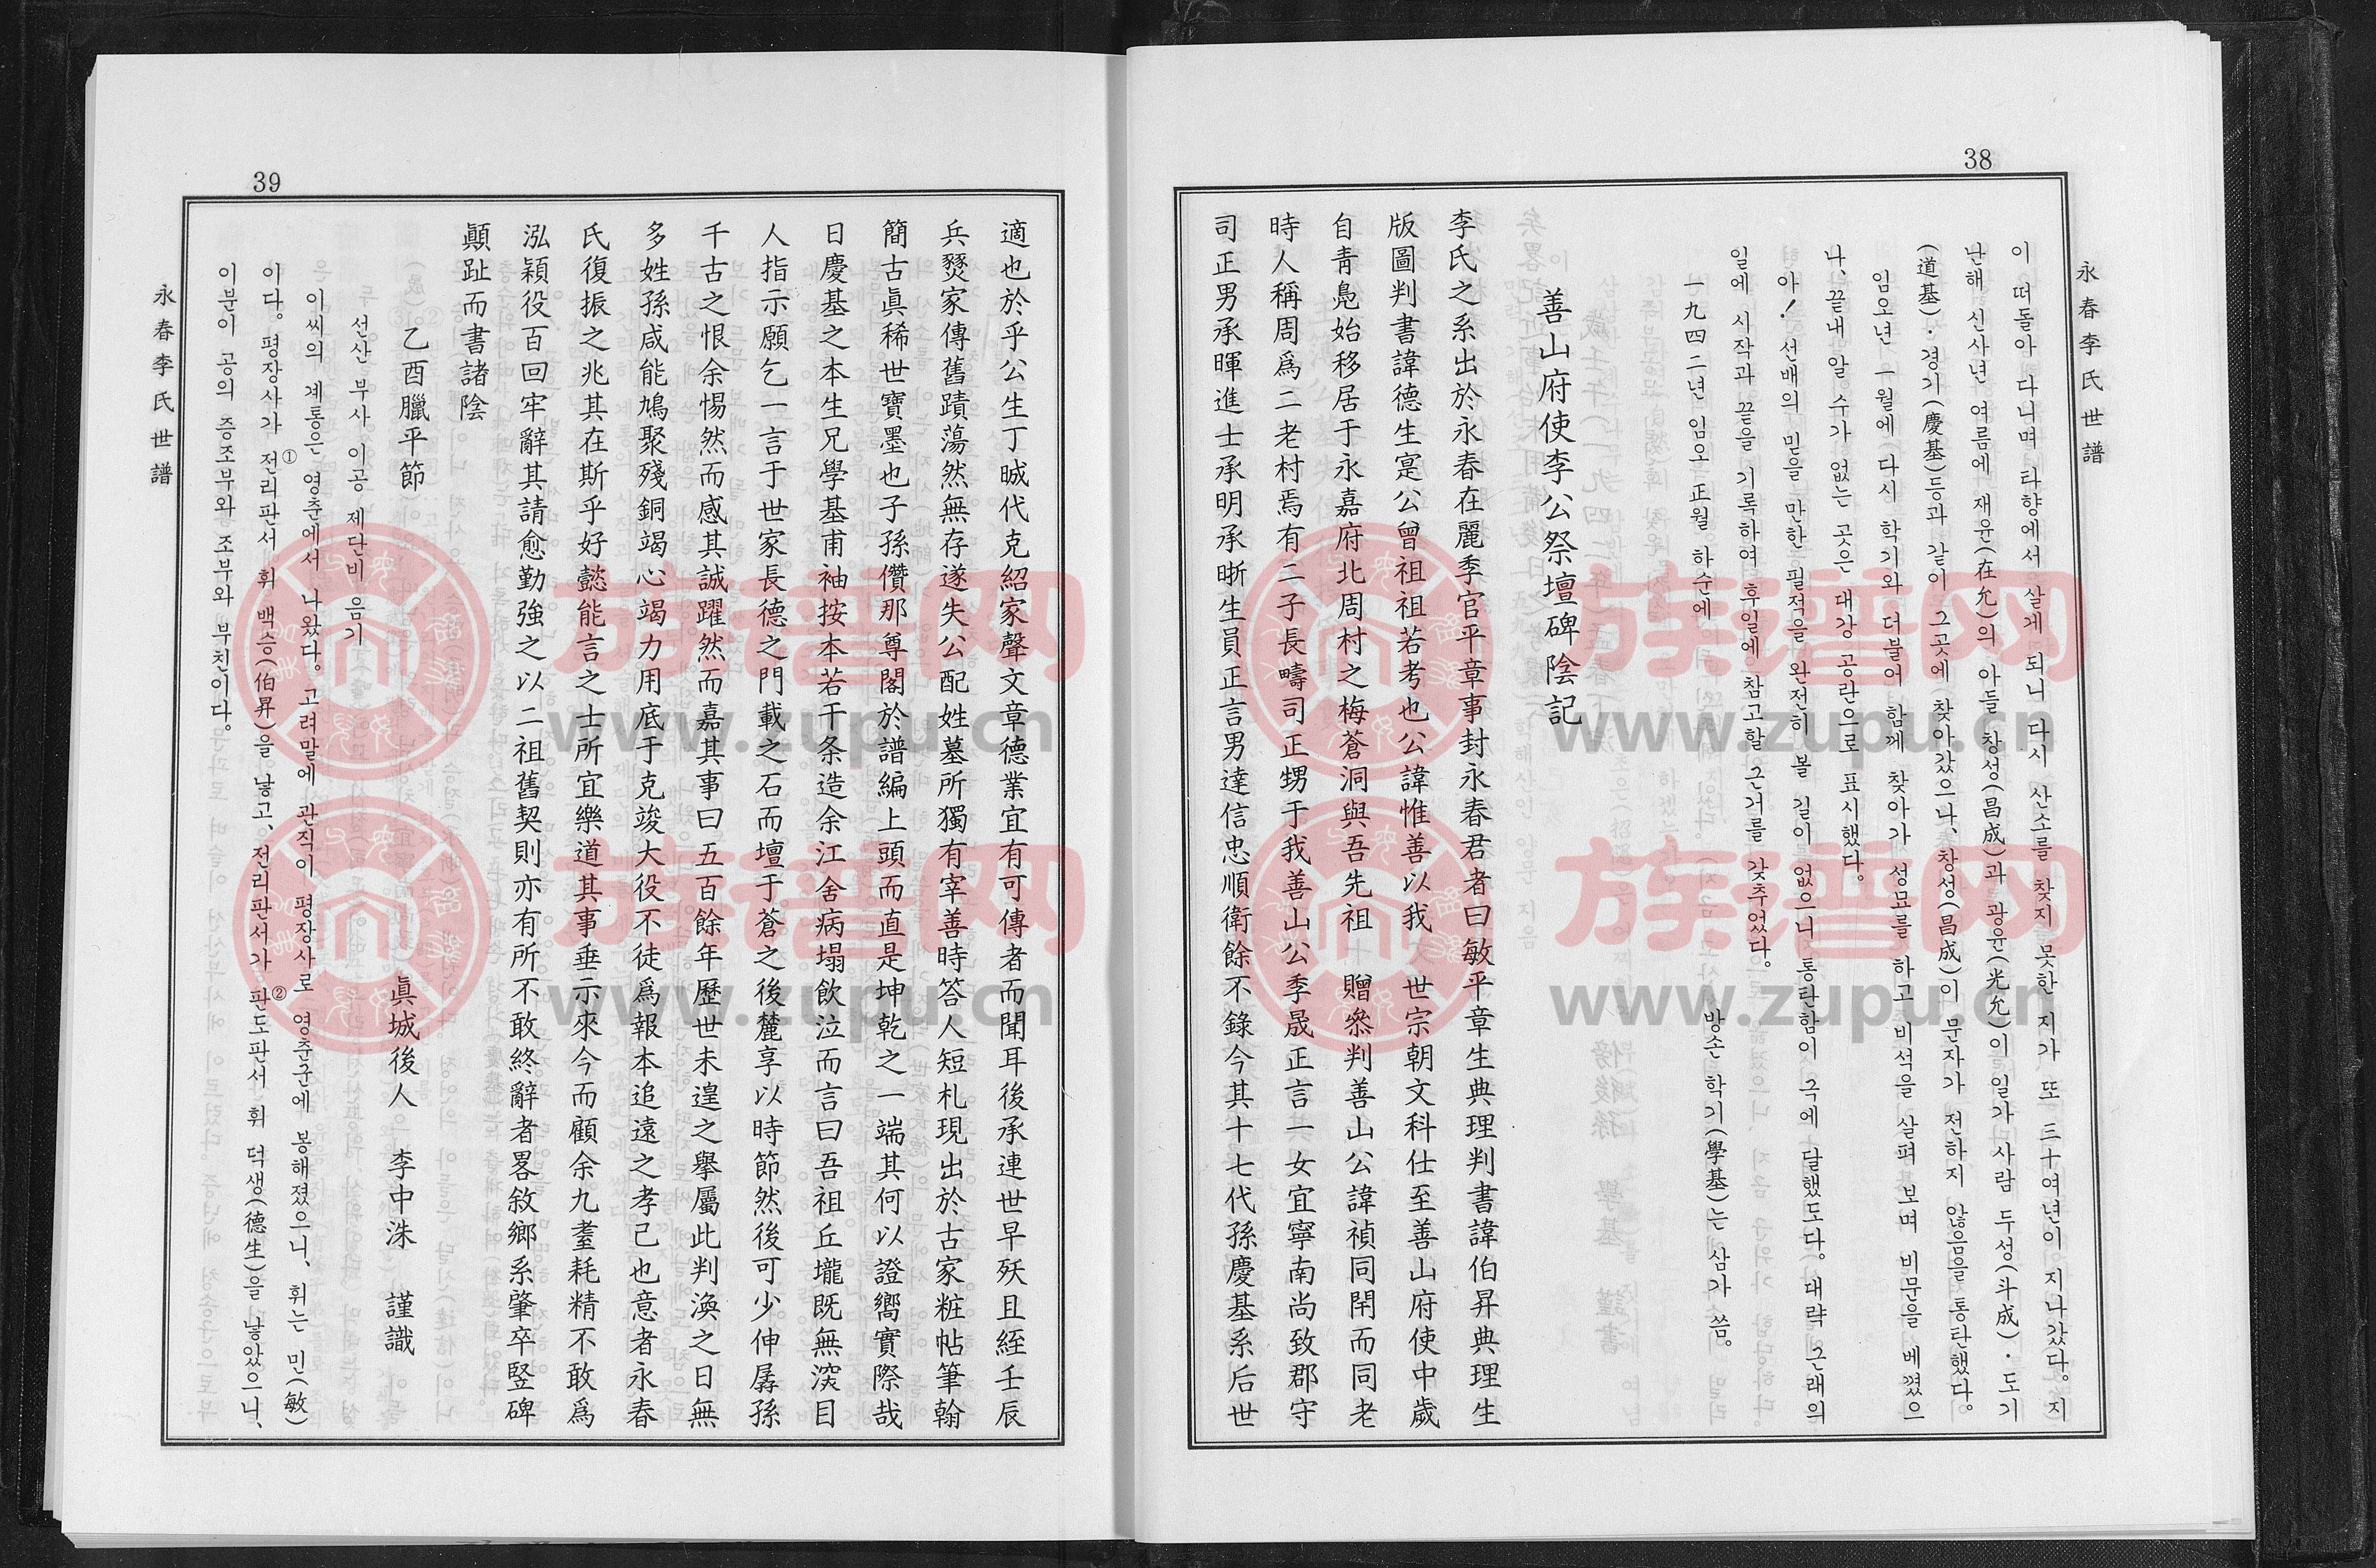 38
永春李氏世譜
이 떠돌아 다니며 타향에서 살게 되니 다시 산소를 찾지 못한 지가 또 三十여년이 지나갔다. 지
난해 신사년 여름에 재윤(在允)의 아들 창성(昌成)과 광윤(光允)이 일가 사람 두성(斗成)·도기
(道基)·경기(慶基)등과 같이 그곳에 찾아갔으나, 창성(昌成)이 문자가 전하지 않음을 통탄했다.
임오년 一월에 다시 학기와 더불어 함께 찾아가 성묘를 하고 비석을 살펴 보며 비문을 베꼈으
나, 끝내 알 수가 없는 곳은 대강 공란으로 표시했다.
아! 선배의 믿을 만한 필적을 완전히 볼 길이 없으니 통탄함이 극에 달했도다. 대략 근래의
일에 시작과 끝을 기록하여 후일에 참고할 근거를 갖추었다.
一九四二년 임오 正월 하순에 방손 학기(學基)는 삼가 씀.
善山府使李公祭壇碑陰記
李氏之系出於永春在麗季官平章事封永春君者曰敏平章生典理判書諱伯昇典理生
版圖判書諱德生寔公曾祖祖若考也公諱惟善以我 世宗朝文科仕至善山府使中歲
自靑鳧始移居于永嘉府北周村之梅蒼洞與吾先祖 贈叅判善山公諱禎同閈而同老
時人稱周爲二老村焉有二子長疇司正甥于我善山公季晟正言一女宜寧南尙致郡守
司正男承暉進士承明承晣生員正言男達信忠順衛餘不錄今其十七代孫慶基系后世
39
永春李氏世譜
適也於乎公生丁晠代克紹家聲文章德業宜有可傳者而聞耳後承連世早殀且經壬辰
兵燹家傳舊蹟蕩然無存遂失公配姓墓所獨有宰善時答人短札現出於古家粧帖筆翰
簡古眞稀世寶墨也子孫儹那尊閣於譜編上頭而直是坤乾之一端其何以證嚮實際哉
日慶基之本生兄學基甫袖按本若干条造余江舍病塌飮泣而言曰吾祖丘壠既無湥目
人指示願乞一言于世家長德之門載之石而壇于蒼之後麓享以時節然後可少伸孱孫
千古之恨余惕然而感其誠躍然而嘉其事曰五百餘年歷世未遑之擧屬此判渙之日無
多姓孫咸能鳩聚殘銅竭心竭力用底于克竣大役不徒爲報本追遠之孝己也意者永春
氏復振之兆其在斯乎好懿能言之士所宜樂道其事垂示來今而顧余九耋耗精不敢爲
泓穎役百回牢辭其請愈勤強之以二祖舊契則亦有所不敢終辭者畧敘鄉系肇卒竪碑
顚趾而書諸陰
乙酉臘平節 眞城後人 李中洙 謹識
선산 부사 이공 제단비 음기
이씨의 계통은 영춘에서 나왔다. 고려말에 관직이 평장사로 영춘군에 봉해졌으니, 휘는 민(敏)
이다. 평장사가 ①전리판서 휘 백승(伯昇)을 낳고, 전리판서가 ②판도판서 휘 덕생(德生)을 낳았으니,
이분이 공의 증조부와 조부와 부친이다.
族譜网
www.zupu.cn
族譜网
www.zupu.cn
族譜网
www.zupu.cn
族譜网
www.zupu.cn